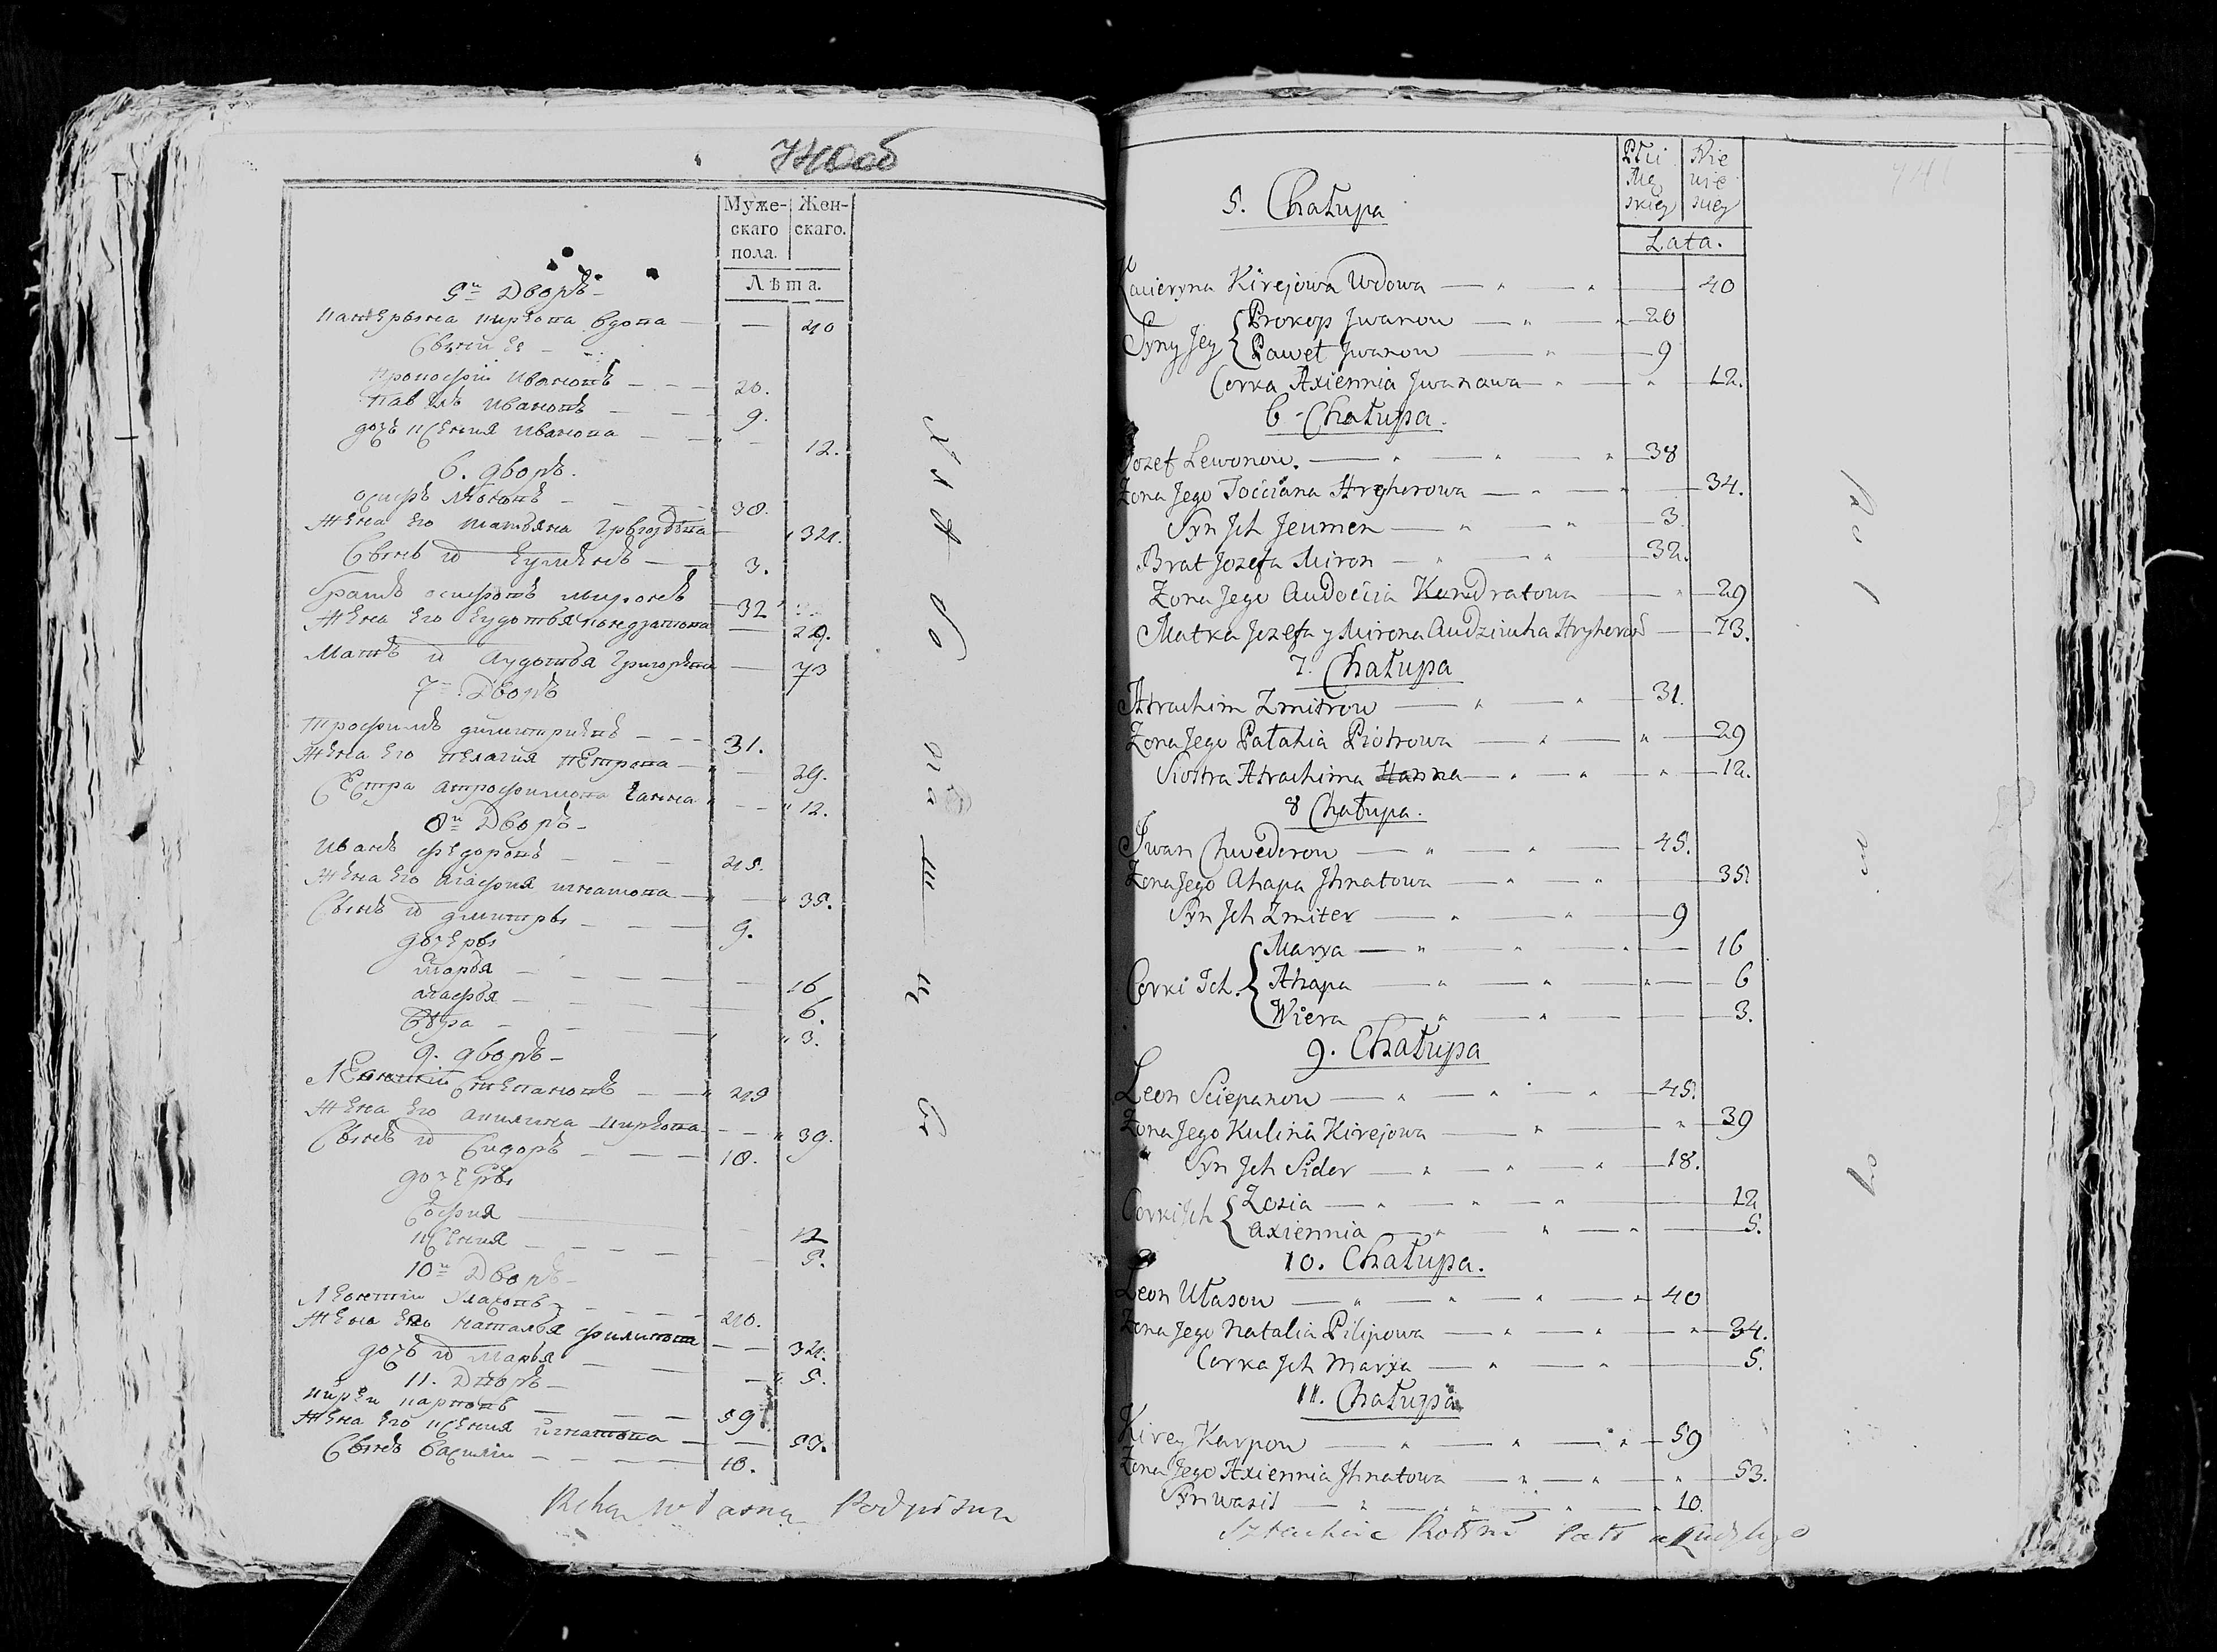 740об
Муже- Жен-
скаго скаго.
пола.
Лѣта.
5й Дворъ
Катерына Кирѣева вдова — 40
Сыны Ее
Прокофій Ивановъ 20.
Павелъ Ивановъ 9.
дочь Ксения Иванова 12.
6. дворъ.
Осифъ Лѣвоновъ 38.
Жена Его Татьяна Григорьева 34.
Сынъ их Еуменъ 3.
Братъ осифовъ Миронъ 32
Жена Его Еудотья Кондратова 29.
Мать их Аудотья Григорьева 73
7й Дворъ
Трофимъ димитриевъ 31.
Жена Его Пелагия Петрова 29.
Сестра Атрофимова Ганна 12.
8й Дворъ
Иванъ Федоровъ 45.
Жена Его Агафия Игнатова 35.
Сынъ их дмитры 9.
дочеры
Марья 16
Агафья 6.
Вѣра 3.
9. дворъ
Леонтій Степановъ 49
Жена Его Акилина Кирѣева 39.
Сынъ их Сидоръ 18.
дочеры
София 12
Ксения 5.
10й Дворъ
Леонтій Уласовъ 40.
Жена Его Наталья Филипова 34.
дочь их Марья 5.
11. Дворъ
Кирѣй Карповъ 59.
Жена Его Ксения Игнатова 53.
Сынъ Василій 10.
Ręką własną Podpisuie
741
Płci Nie
Mę wie
skiey skiey
5. Chałupa
Lata.
Kacieryna Kirejowa Wdowa 40
Syny Jey Prokop Jwanow 20
Paweł Jwanow 9
Corka Axiennia Jwanowa 12.
6 Chałupa.
Jozef Lewonow. 38
Zona Jego Tocciana Hryhorowa 34.
Syn Jch Jeumen 3.
Brat Jozefa Miron 32.
Zona Jego Audoccia Kondratowa 29
Matka Jozefa y Mirona Audziucha Hryhorow 73.
7. Chałupa
Atrachim Zmitrow 31.
Zona Jego Pałahia Piotrowa 29
Siostra Atrachima Hanna 12.
8 Chałupa.
Jwan Chwedorow 45.
Zona Jego Ahapa Jhnatowa 35.
Syn Jch Zmiter 9
Corki Jch. Marya 16
Ahapa 6
Wiera 3.
9. Chałupa
Leon Sciepanow 45.
Zona Jego Kulina Kirejowa 39
Syn Jch Sider 18.
Corki Jch Zosia 12
Axiennia 5.
10. Chałupa.
Leon Ułasow 40
Zona Jego Natalia Pilipowa 34.
Corka Jch Marya 5.
11. Chałupa
Kirey Karpow 59
Zona Jego Axiennia Jhnatowa 53.
Syn Wasil 10.